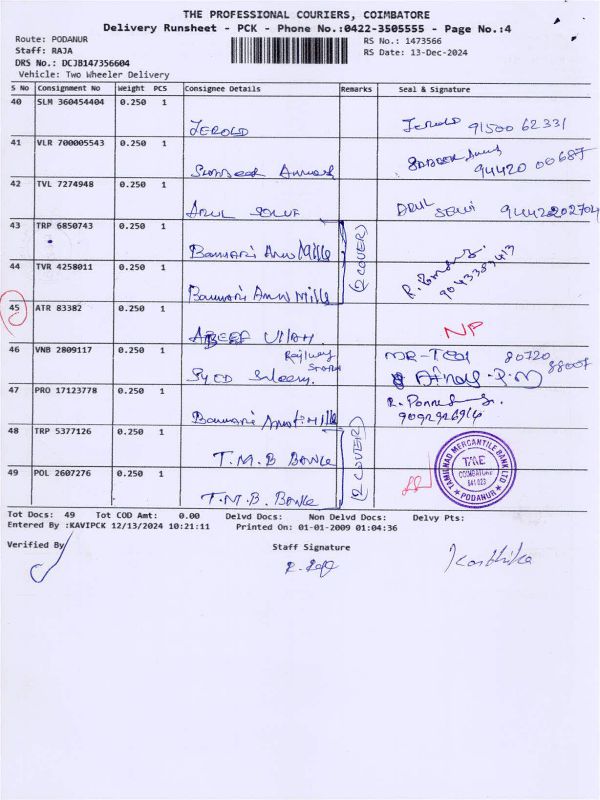 THE PROFESSIONAL COURIERS, COIMBATORE
Delivery Runsheet - PCK - Phone No.:0422-3505555 - Page No.:4
Route: PODANUR
RS No.: 1473566
Staff: RAJA
RS Date: 13-Dec-2024
DRS No.: DCJB147356604
Vehicle: Two Wheeler Delivery
S No Consignment No Weight PCS Consignee Details Remarks Seal & Signature
40 SLM 360454404 0.250 1
JEROLD Jerold 91500 62331
41 VLR 700005543 0.250 1
94420 00687
42 TVL 7274948 0.250 1
Selvi
43 TRP 6850743 0.250 1
Bannari Amn Mills (2 COVER)
44 TVR 4258011 0.250 1
Bannari Amn Mills
45 ATR 83382 0.250 1
NP
46 VNB 2809117 0.250 1
Railway
Syed 80720 88007
47 PRO 17123778 0.250 1
Bannari Mills
48 TRP 5377126 0.250 1
T.M.B Bank (2 COVER)
49 POL 2607276 0.250 1
T.M.B. Bank
TAMILNAD MERCANTILE BANK LTD
COIMBATORE
641 023
PODANUR
Tot Docs: 49 Tot COD Amt: 0.00 Delvd Docs: Non Delvd Docs: Delvy Pts:
Entered By :KAVIPCK 12/13/2024 10:21:11 Printed On: 01-01-2009 01:04:36
Verified By Staff Signature
Karthika